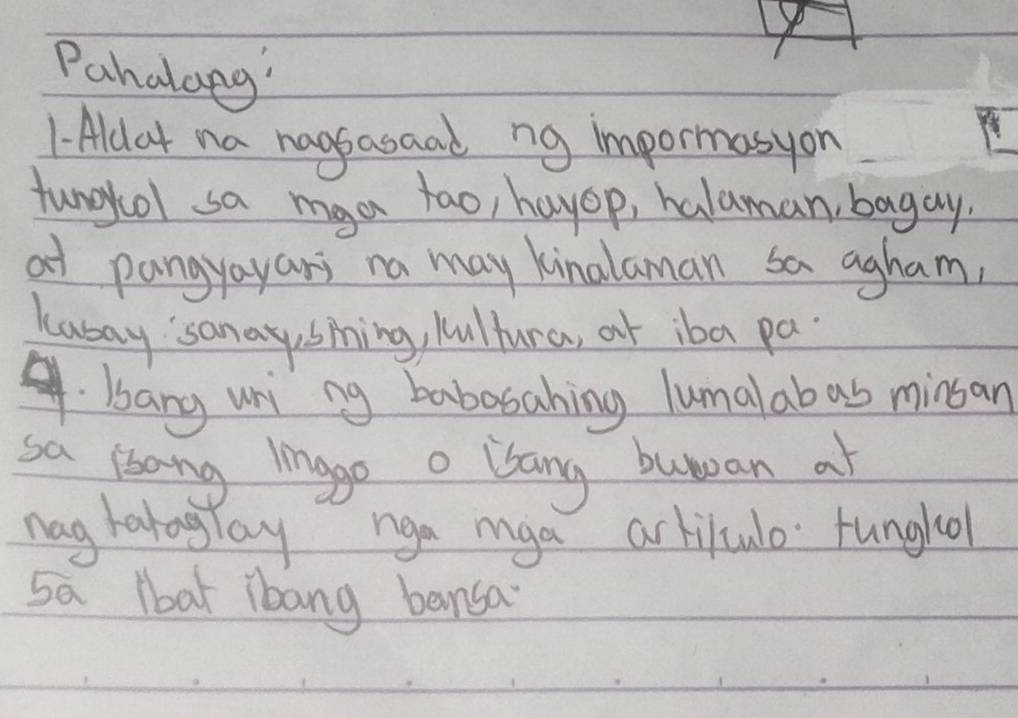 Pahalang:
1-Aklat na nagsasaad ng impormasyon
tungkol sa mga tao, hayop, halaman, bagay,
at pangyayari na may kinalaman sa agham,
kasaysanay, sining, kultura, at iba pa.
4. Isang uri ng babasahing lumalabas minsan
sa isang linggo o isang buwan at
nagtataglay nga mga artikulo tungkol
sa ibat ibang bansa.